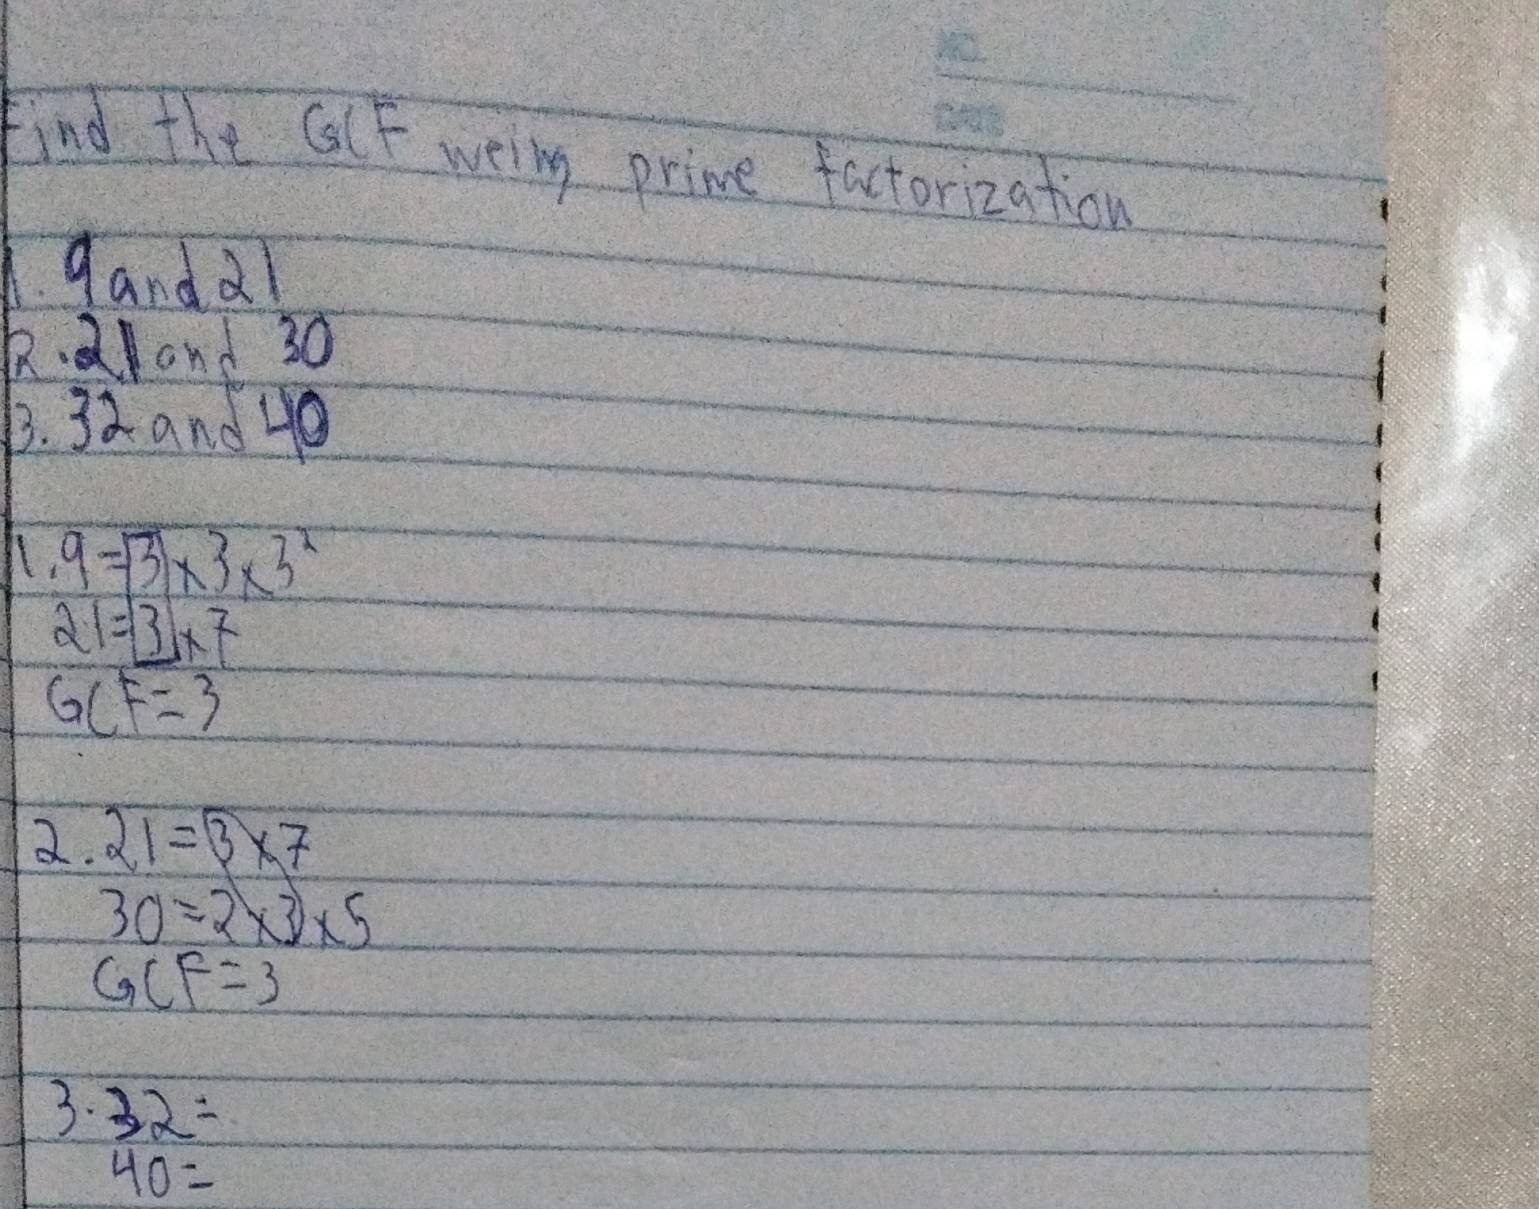 NO.
DATE
Find the GCF weing prime factorization
1. 9 and 21
2. 21 and 30
3. 32 and 40
1. 9 = 3 x 3 x 3²
21 = 3 x 7
GCF = 3
2. 21 = 3 x 7
30 = 2 x 3 x 5
GCF = 3
3. 32 =
40 =